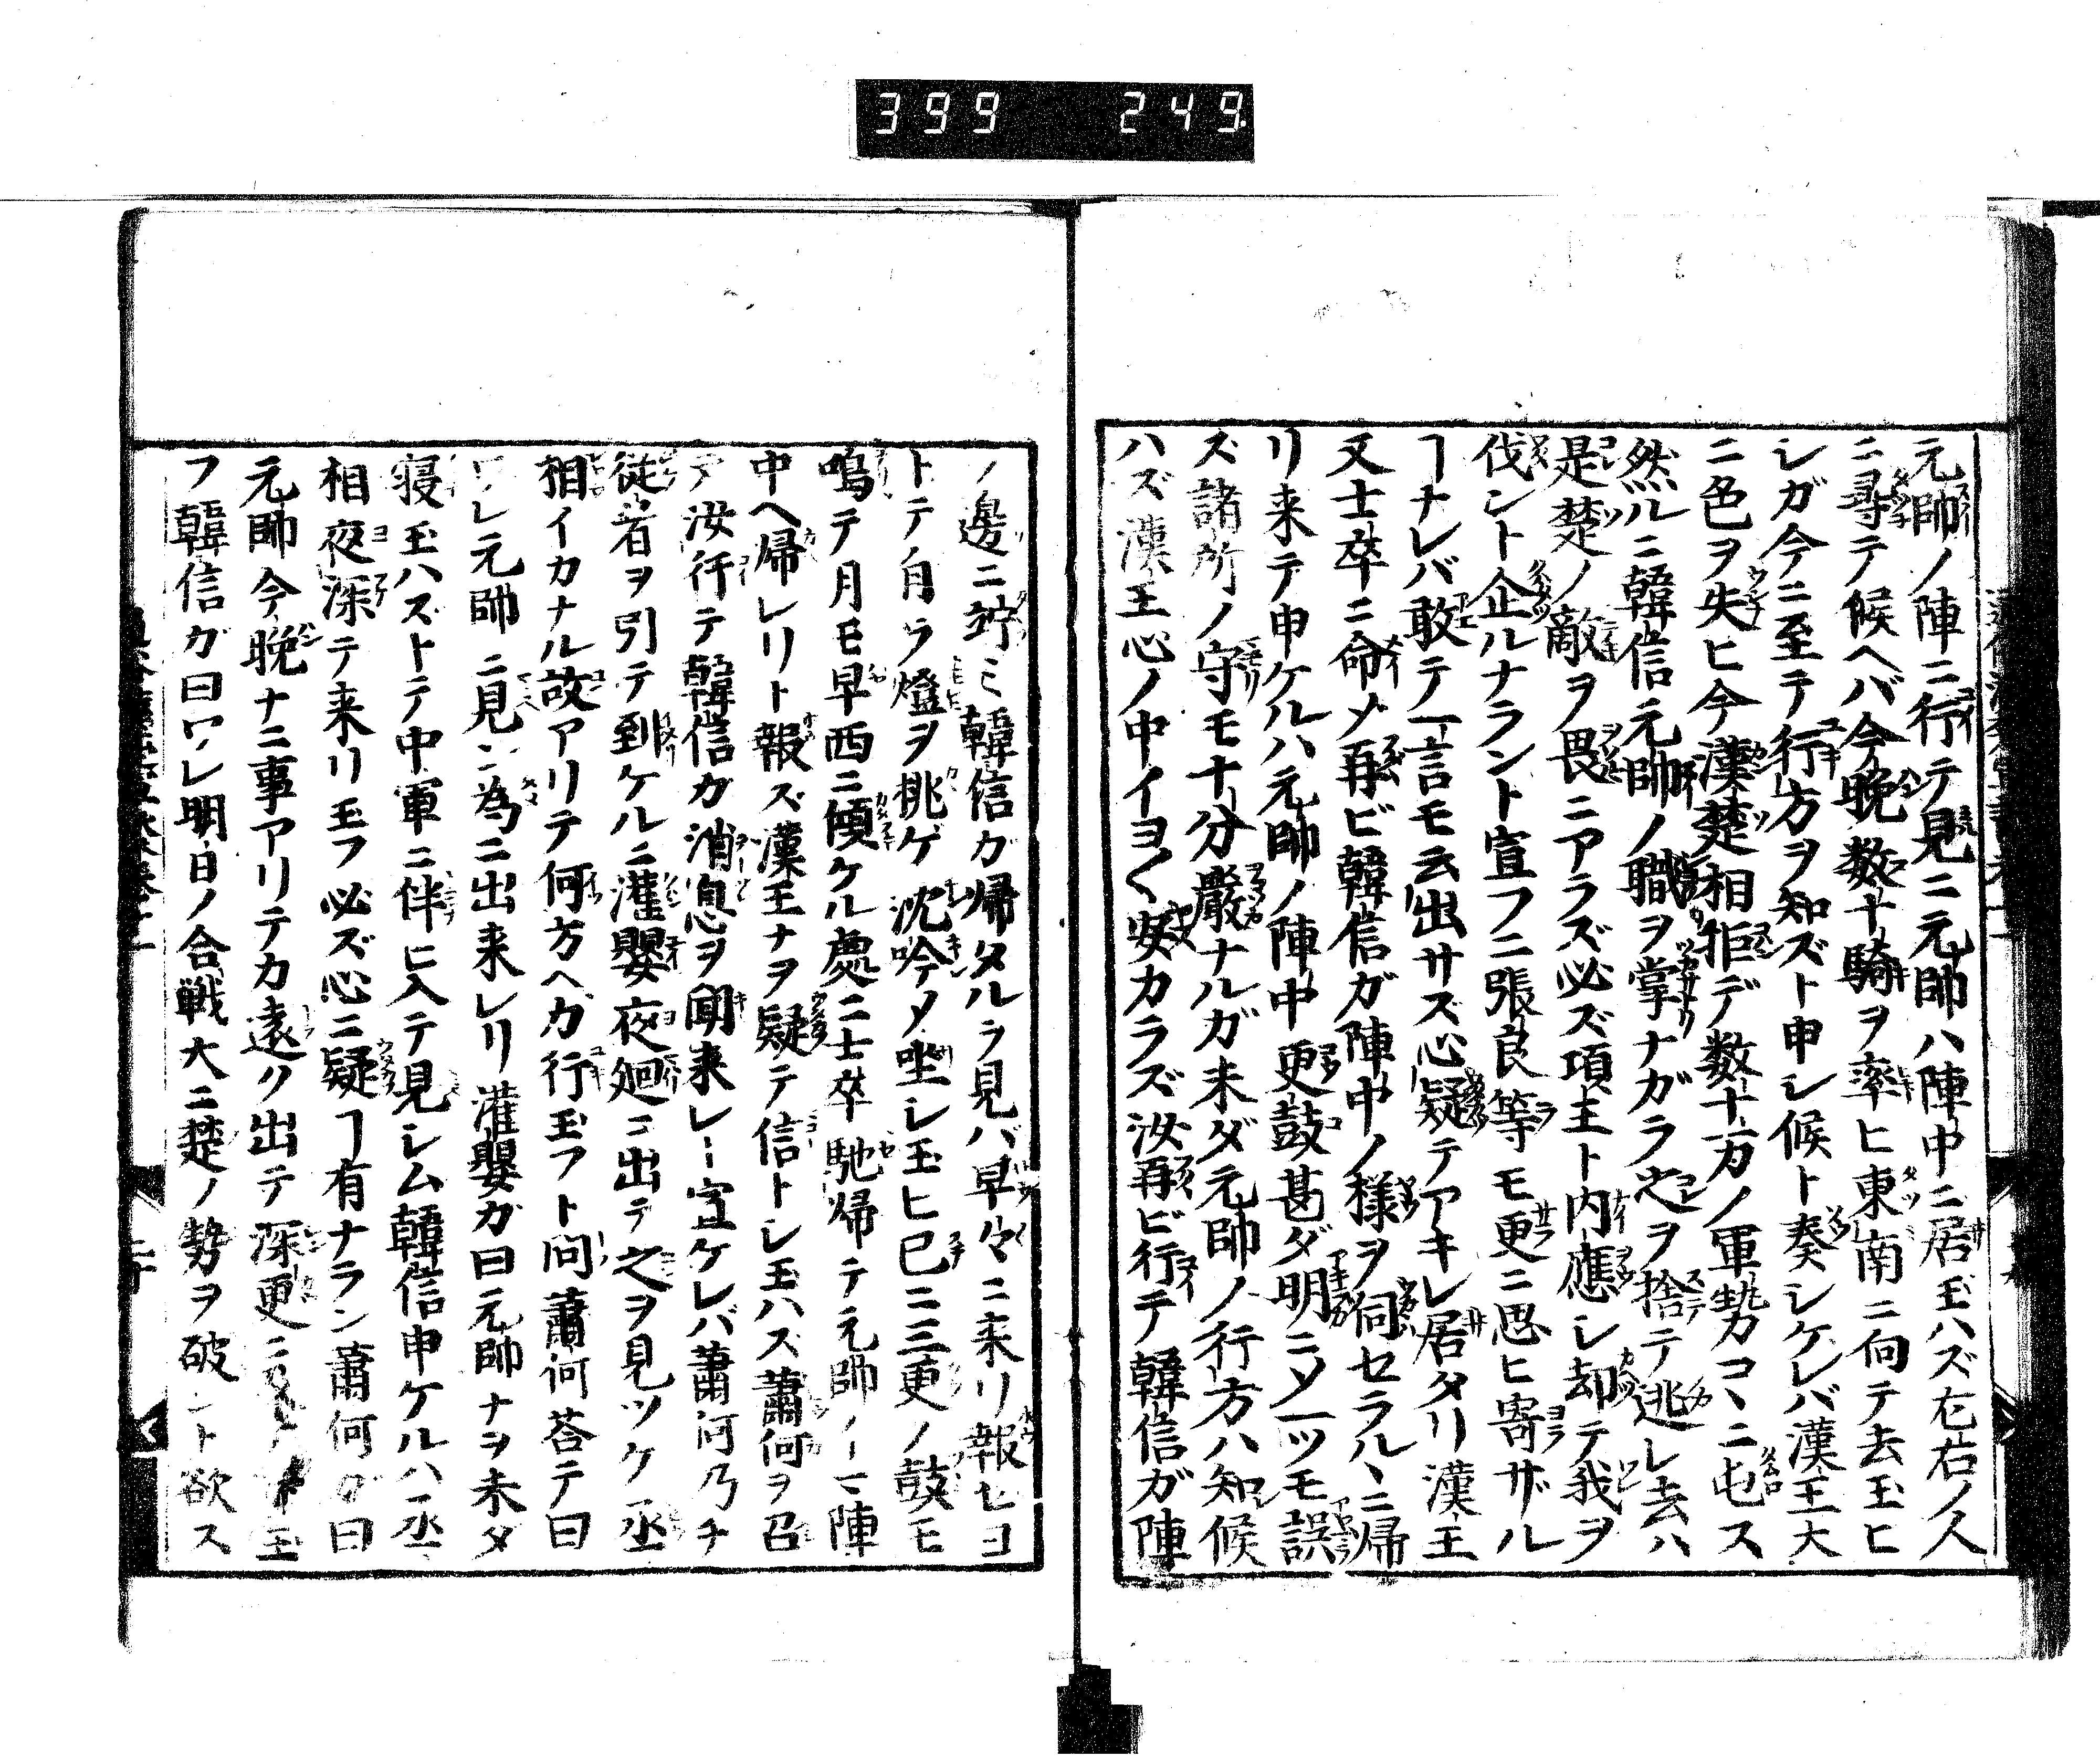 399 249
元帥ノ陣ニ行テ見ニ元帥ハ陣中ニ居玉ハズ左右ノ人
ニ尋テ候ヘバ今晩数十騎ヲ率ヒ東南ニ向テ去玉ヒ
シガ今ニ至テ行方ヲ知ズト申シ候ト奏シケレバ漢王大
ニ色ヲ失ヒ今漢楚相拒デ数十万ノ軍勢カコヽニ屯ス
然ルニ韓信元帥ノ職ヲ掌ナガラ之ヲ捨テ逃レ去ハ
是楚ノ敵ヲ畏ニアラズ必ズ項王ト内應シ却テ我ヲ
伐ント企ルナラント宣フニ張良等モ更ニ思ヒ寄ザル
ヿナレバ敢テ一言モ云出サズ心疑テアキレ居タリ漢王
又士卒ニ命メ再ビ韓信ガ陣中ノ様ヲ伺セラルヽニ帰
リ来テ申ケルハ元帥ノ陣中更鼓甚ダ明ニソ一ツモ誤
ズ諸所ノ守モ十分嚴ナルガ未ダ元帥ノ行方ハ知候
ハズ漢王心ノ中イヨ〱安カラズ汝再ビ行テ韓信ガ陣
ノ邊ニ竚ミ韓信ガ帰タルヲ見バ早々ニ来リ報セヨ
トテ自ラ燈ヲ挑ゲ沈吟メ坐シ玉ヒ已ニ三更ノ鼓モ
鳴テ月モ早西ニ傾ケル處ニ士卒馳帰テ元帥ノ一陣
中ヘ帰レリト報ズ漢王ナヲ疑テ信トシ玉ハズ蕭何ヲ召
テ汝行テ韓信カ消息ヲ聞来レト宣ケレバ蕭何乃チ
従者ヲ引テ到ケルニ灌嬰夜廻ニ出テ之ヲ見ツケ丞
相イカナル故アリテ何方ヘカ行玉フト問蕭何荅テ曰
ワレ元帥ニ見ン為ニ出来レリ灌嬰ガ曰元帥ナヲ未タ
寝玉ハズトテ中軍ニ伴ヒ入テ見シム韓信申ケルハ丞
相夜深テ来リ玉フ必ズ心ニ疑ヿ有ナラン蕭何ガ曰
元帥今晩ナニ事アリテカ遠ク出テ深更ニ玉
フ韓信ガ曰ワレ明日ノ合戦大ニ楚ノ勢ヲ破ント欲ス